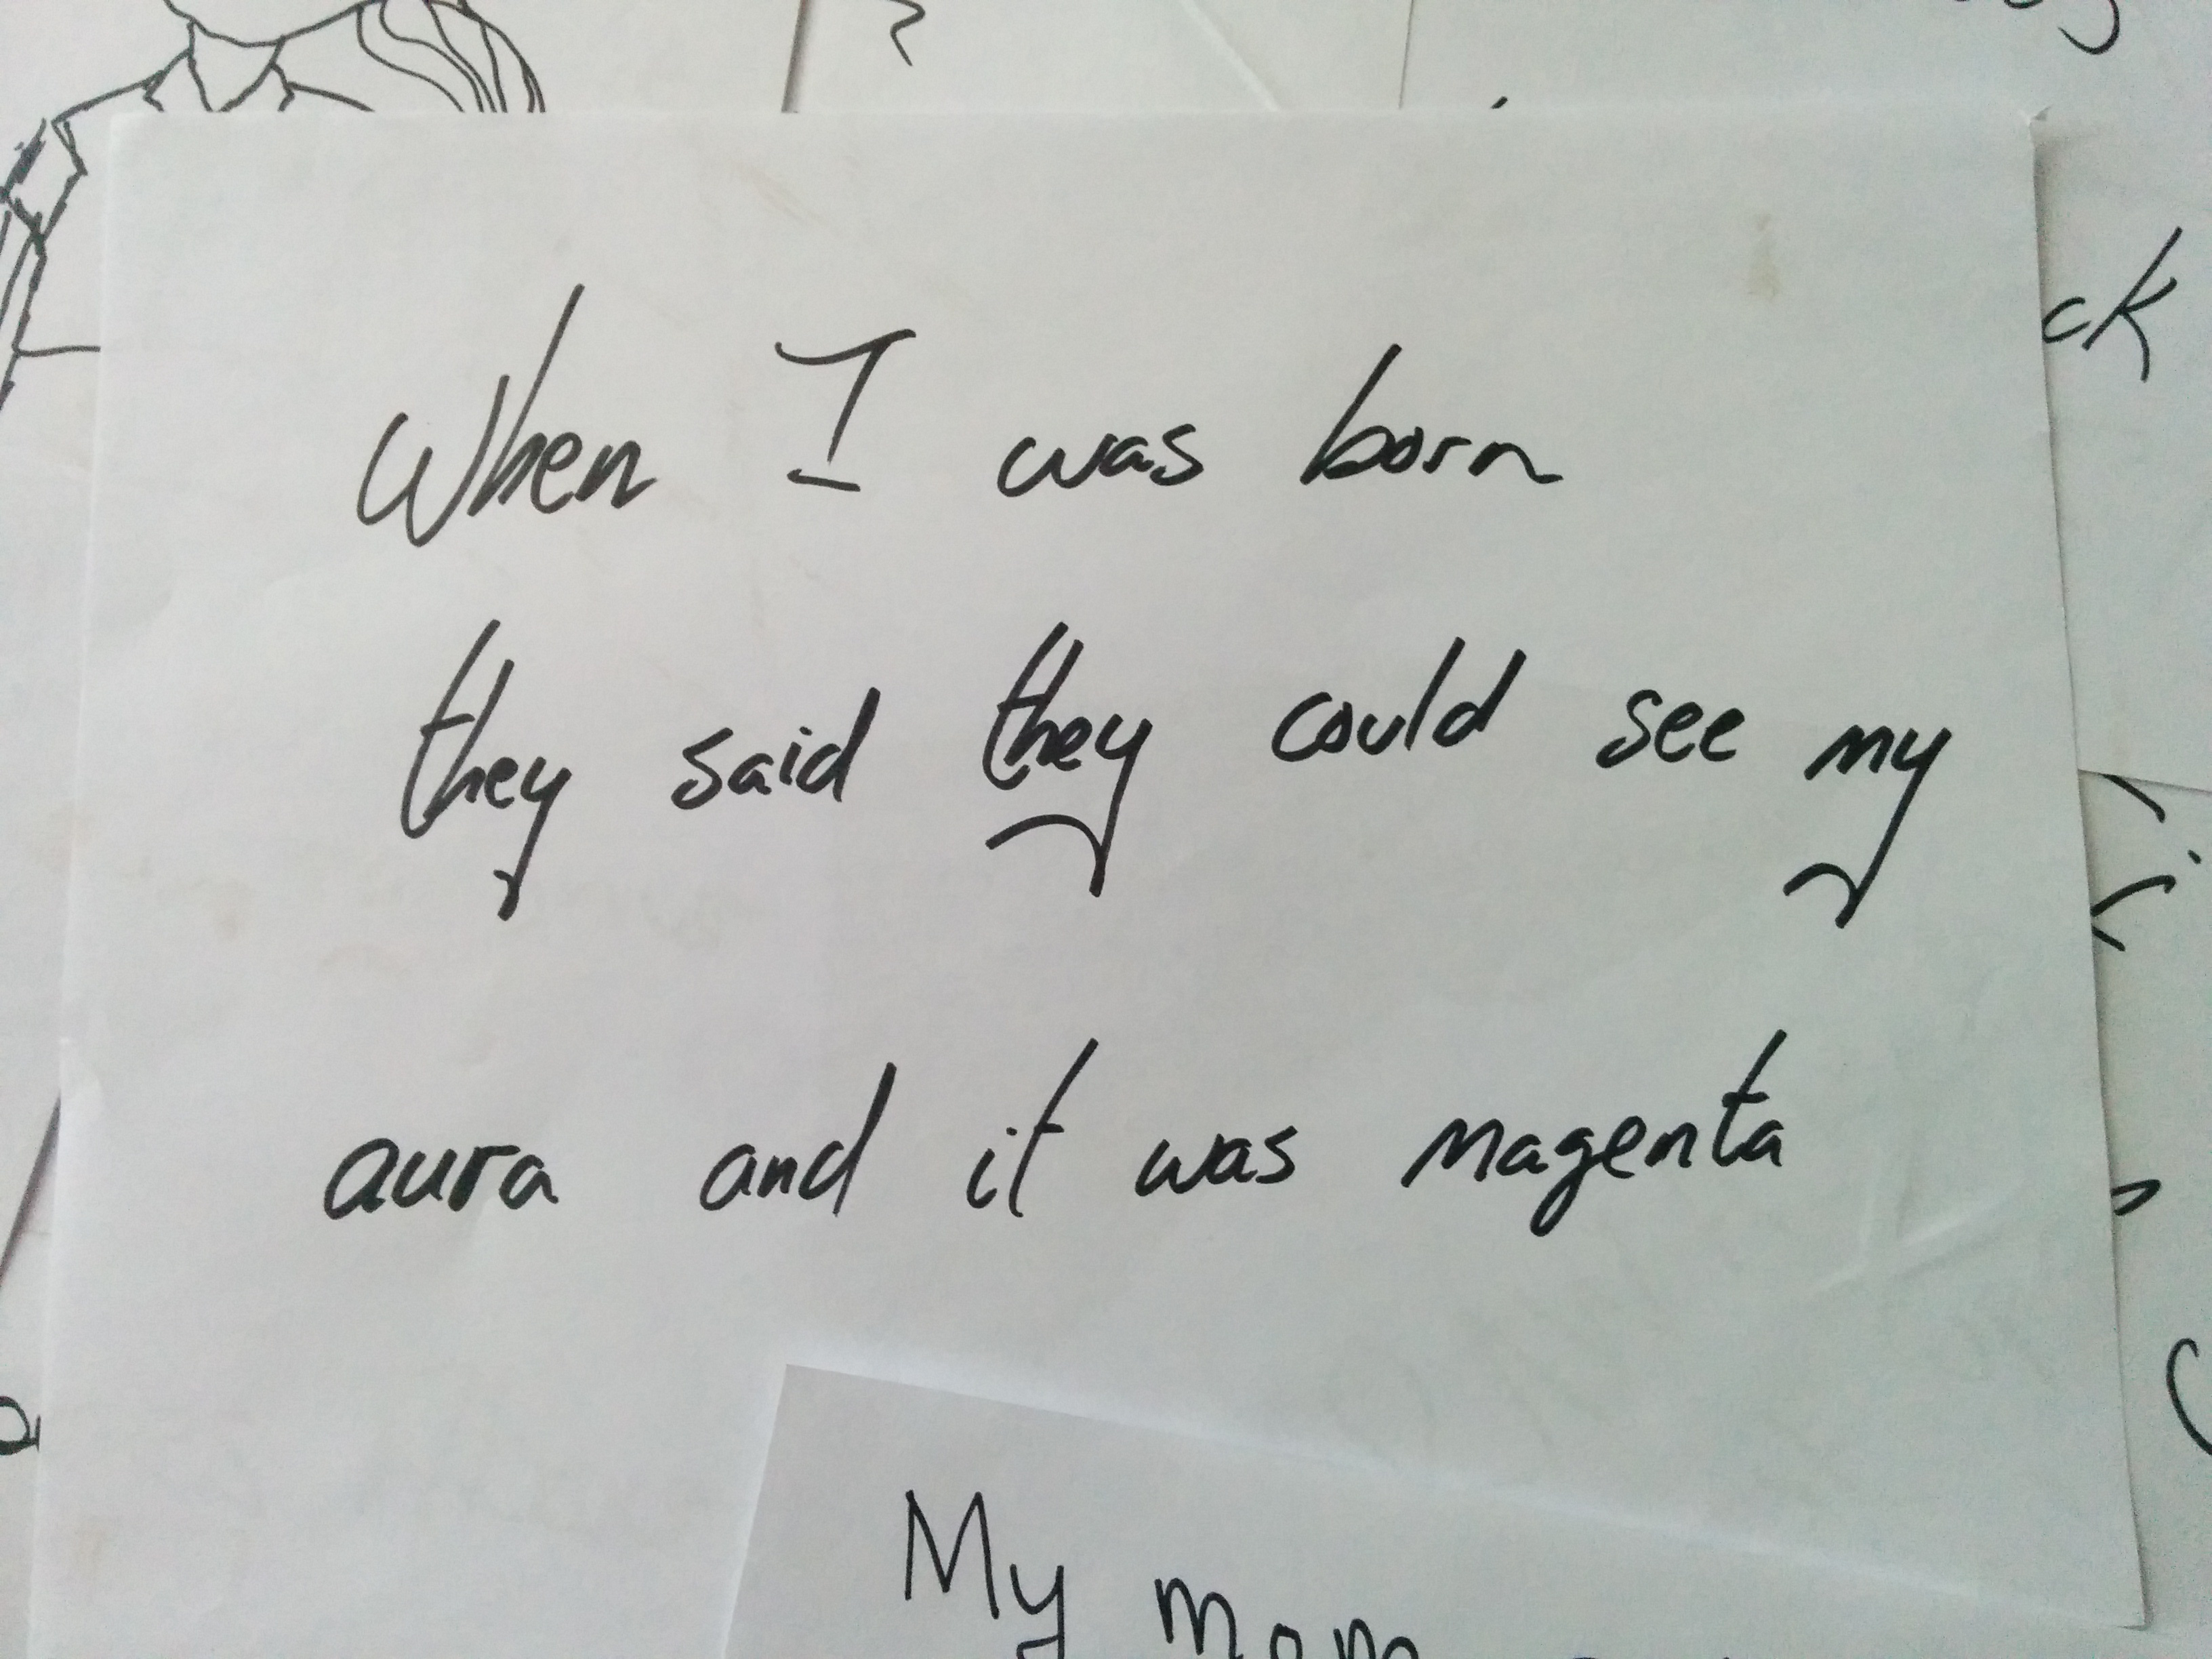 When I was born
they said they could see my
aura and it was magenta
My mom
ck